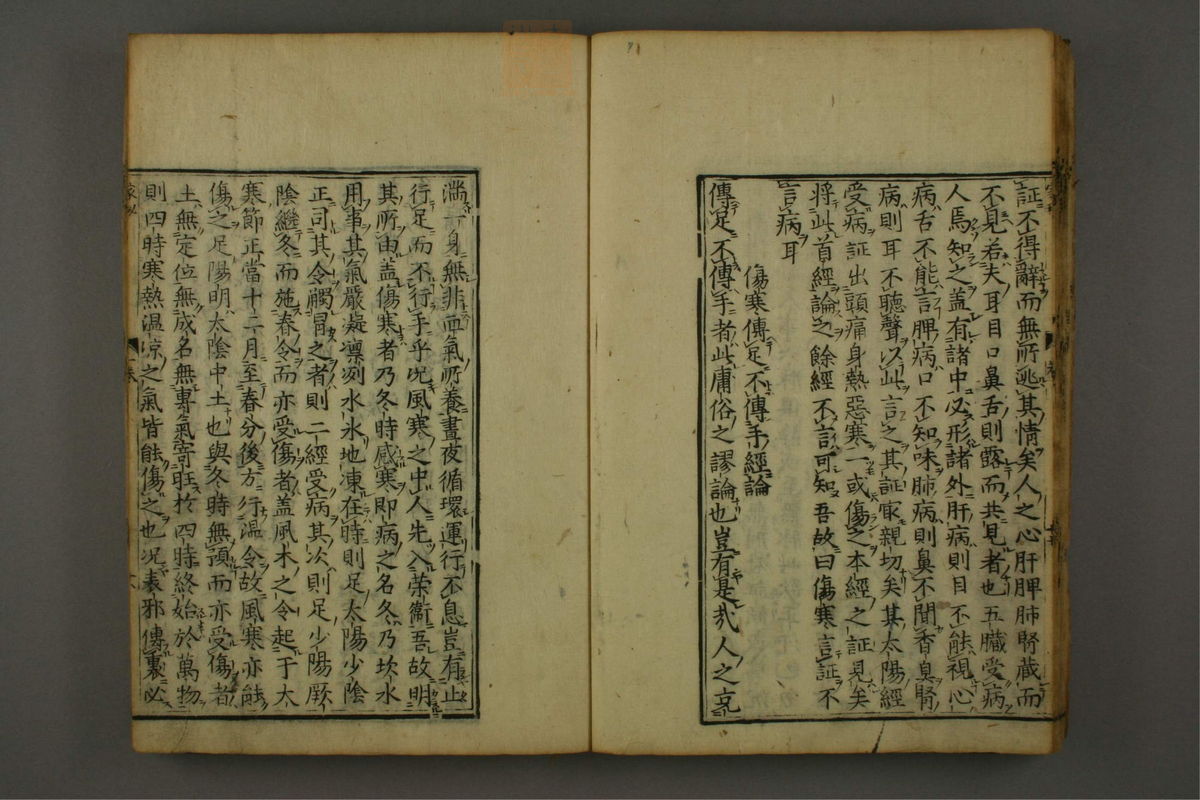 証不得辭而無所逃其情矣人之心肝脾肺腎藏而
不見若夫耳目口鼻舌則露而共見者也五臓受病
人焉知之盖有諸中必形諸外肝病則目不能視心
病舌不能言脾病口不知味肺病則鼻不聞香臭腎
病則耳不聽聲以此言之其証㝡親切矣其太陽經
受病証出頭痛身熱惡寒一二或傷之本經之証見矣
將此首經論之餘經不言可知吾故曰傷寒言証不
言病耳
傷寒傳足不傳手經論
傳足不傳手者此庸俗之謬論也豈有是㢤人之充
滿一身無非血氣所養晝夜循環運行不息豈有止
行足而不行手乎况風寒之中人先入荣衞吾故明
其所由盖傷寒者乃冬時感寒即病之名冬乃坎水
用事其氣嚴凝凛冽水氷地凍在時則足太陽少陰
正司其令觸冒之者則二經受病其次則足少陽厥
陰繼冬而施春令而亦受傷者盖風木之令起于大
寒節正當十二月至春分後方行温令故風寒亦能
傷之足陽明太陰中土也與冬時無預而亦受傷者
土無定位無成名無專氣寄旺於四時終始於萬物
則四時寒熱温凉之氣皆能傷之也况表邪傳裏必